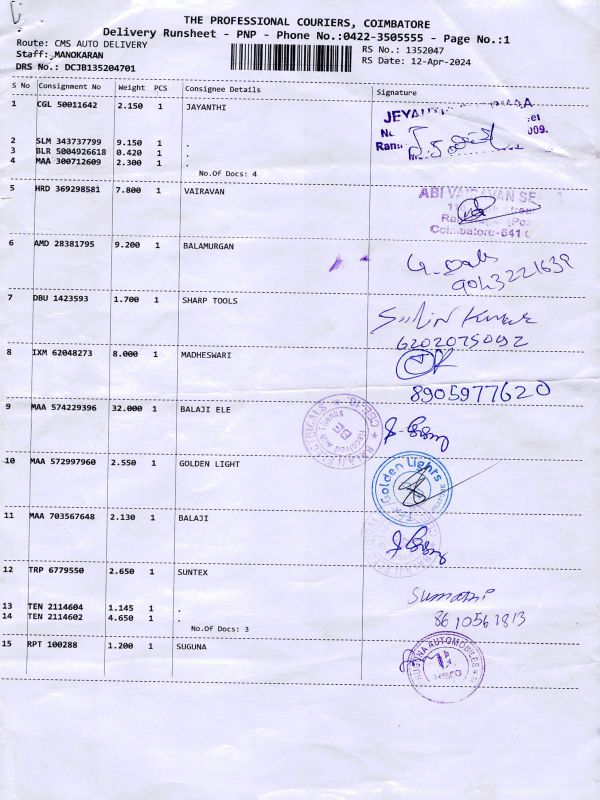 THE PROFESSIONAL COURIERS, COIMBATORE
Delivery Runsheet - PNP - Phone No.:0422-3505555 - Page No.:1
Route: CMS AUTO DELIVERY RS No.: 1352047
Staff: MANOKARAN RS Date: 12-Apr-2024
DRS No.: DCJB135204701
S No Consignment No Weight PCS Consignee Details Signature
1 CGL 50011642 2.150 1 JAYANTHI
2 SLM 343737799 9.150 1 .
3 BLR 5004926618 0.420 1 .
4 MAA 300712609 2.300 1 .
No.Of Docs: 4
5 HRD 369298581 7.800 1 VAIRAVAN
ABI VAIRAVAN SE
Coimbatore-641
6 AMD 28381795 9.200 1 BALAMURGAN
9043221639
7 DBU 1423593 1.700 1 SHARP TOOLS
Kumar
6202075092
8 IXM 62048273 8.000 1 MADHESWARI
8905977620
9 MAA 574229396 32.000 1 BALAJI ELE
10 MAA 572997960 2.550 1 GOLDEN LIGHT
Golden Lights
11 MAA 703567648 2.130 1 BALAJI
12 TRP 6779550 2.650 1 SUNTEX
13 TEN 2114604 1.145 1 .
14 TEN 2114602 4.650 1 .
8610561813
No.Of Docs: 3
15 RPT 100288 1.200 1 SUGUNA
SUGUNA AUTOMOBILES